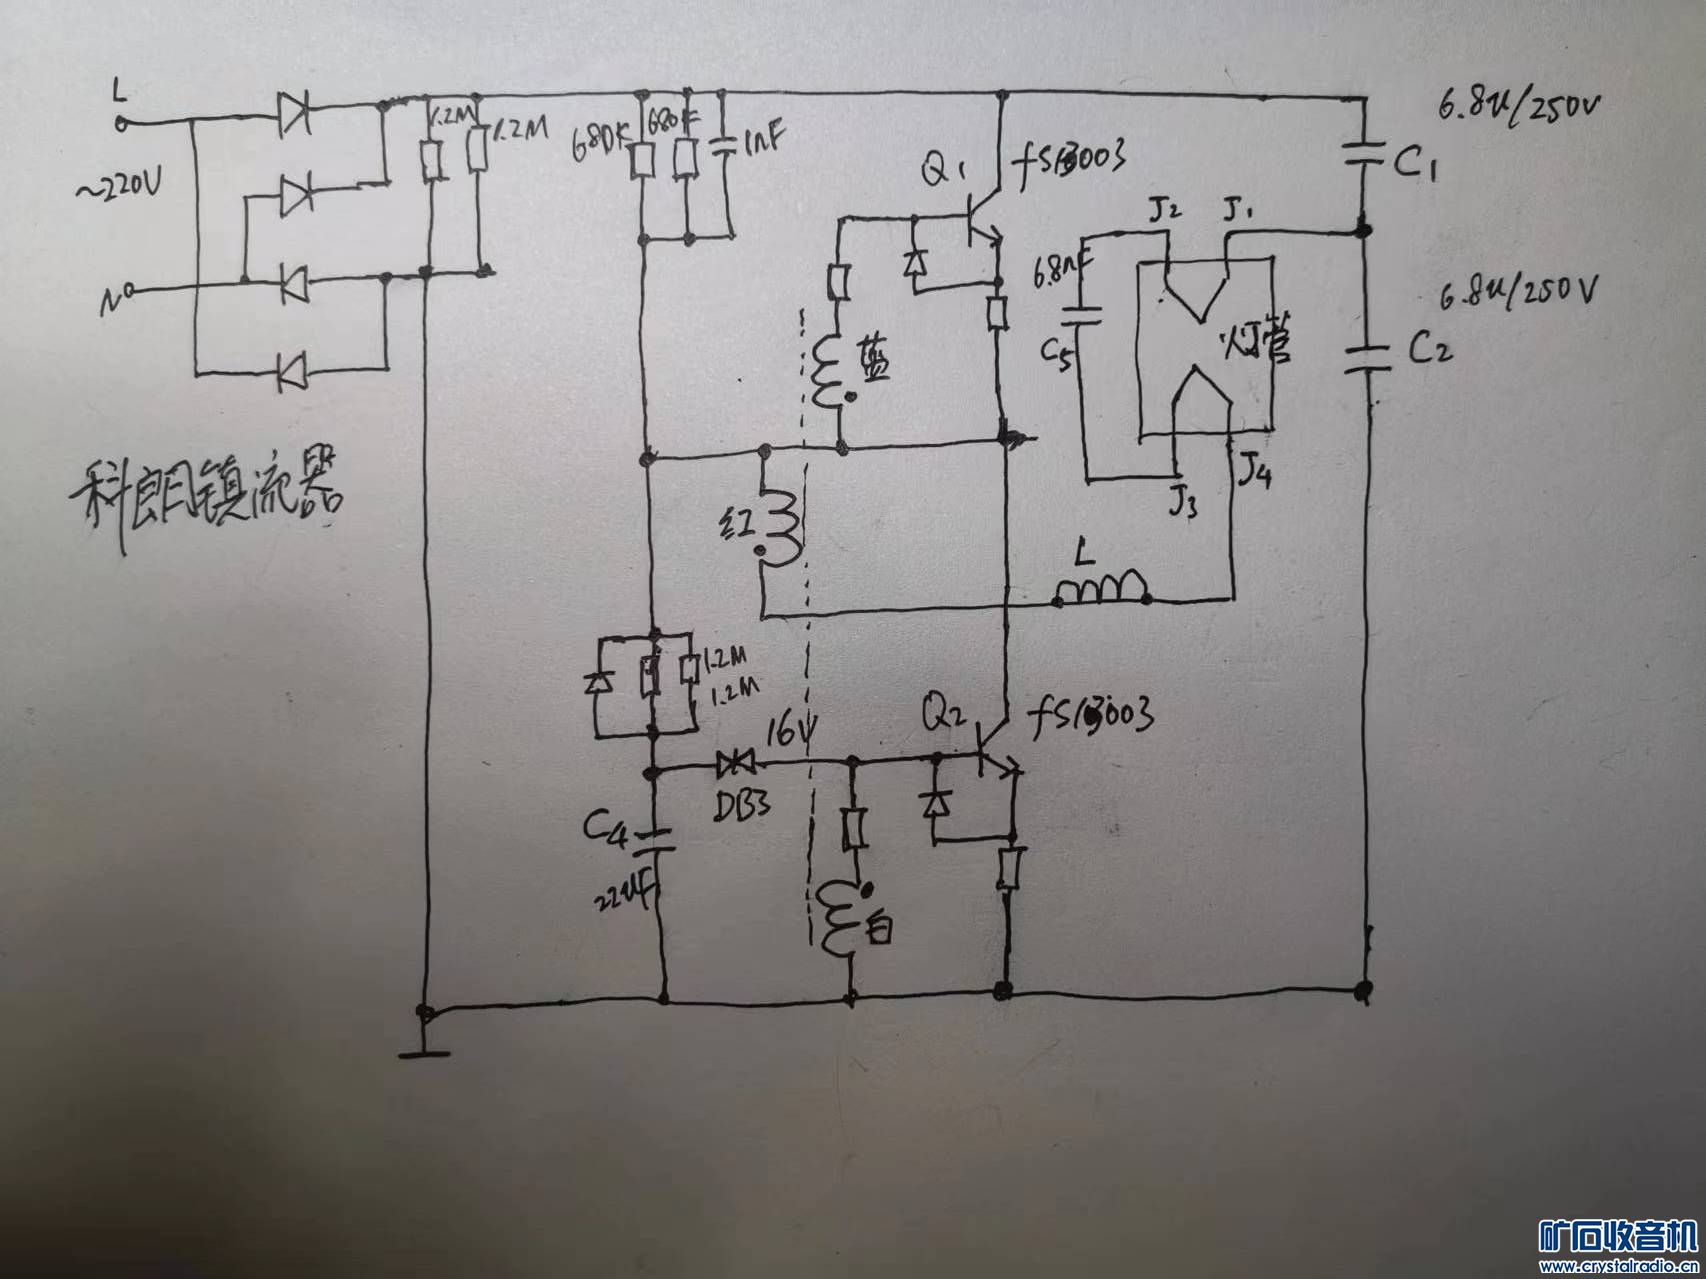 L
~220V
N
1.2M
1.2M
680K
680K
1nF
Q1
fS13003
6.8u/250V
C1
J2
J1
6.8nF
C5
灯管
6.8u/250V
C2
蓝
科朗镇流器
红
J3
J4
L
1.2M
1.2M
16V
DB3
Q2
fS13003
C4
22uF
白
矿石收音机
www.crystalradio.cn